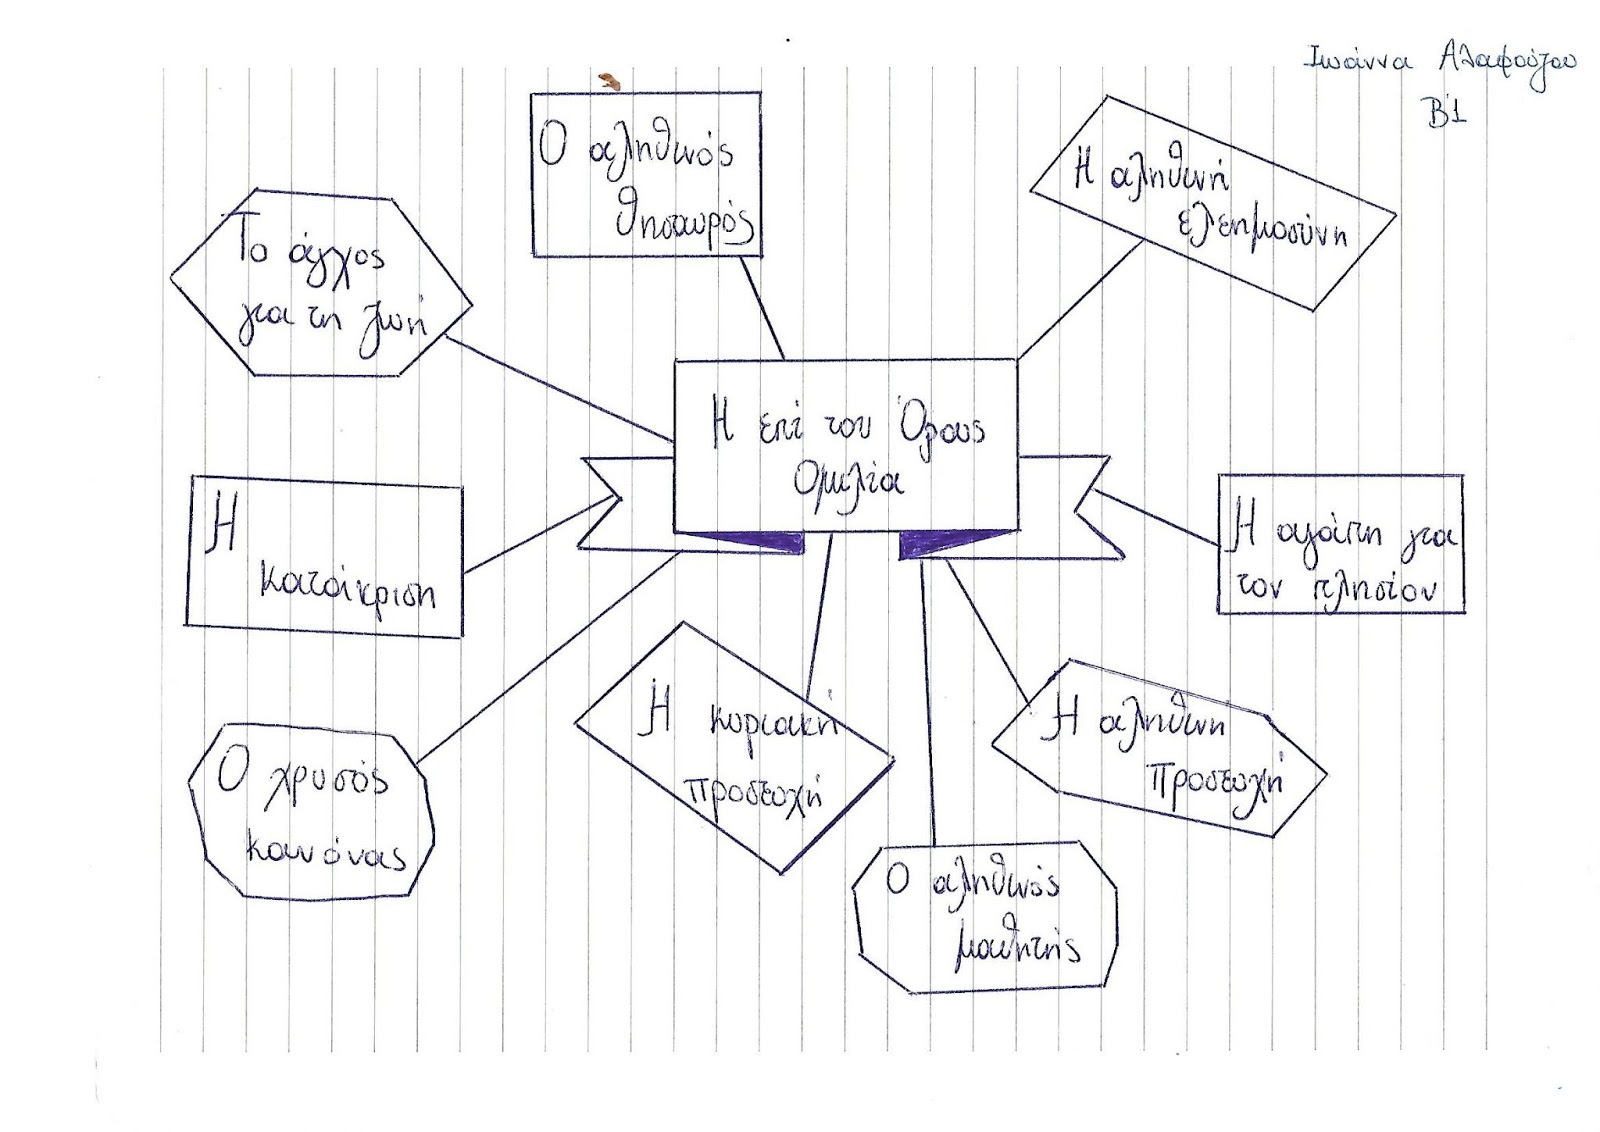 Ιωάννα Αλαφούζου
Β'1
Ο αληθινός
θησαυρός
Η αληθινή
ελεημοσύνη
Το άγχος
για τη ζωή
Η επί του Όρους
Ομιλία
Η
κατάκριση
Η αγάπη για
τον πλησίον
Ο χρυσός
κανόνας
Η κυριακή
προσευχή
Η αληθινη
προσευχή
Ο αληθινός
μαθητής